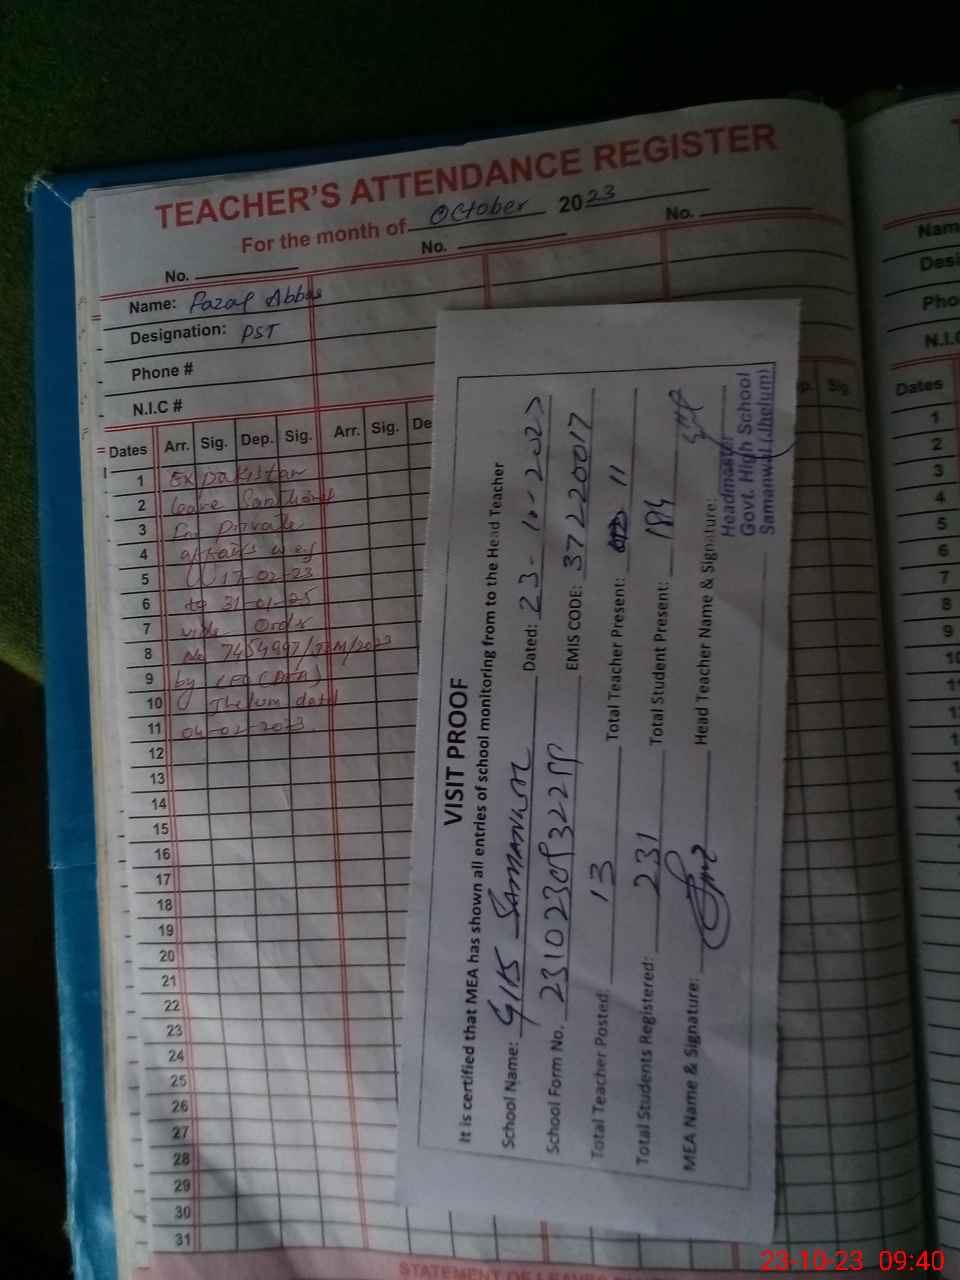 TEACHER'S ATTENDANCE REGISTER
For the month of October 2023
No. No. No.
Name: Fazal Abbas
Designation: PST
Phone #
N.I.C #
Dates Arr. Sig. Dep. Sig. Arr. Sig. De
1 Ex Pakistan
2 leave Sanctioned
3 For private
4 affairs w.e.f
5 17-02-23
6 to 31-01-25
7 vide Order
8 No 7454997/ /2023
9 by CEO (DEA)
10 Jhelum dated
11 04-02-2023.
12
13
14
15
16
17
18
19
20
21
22
23
24
25
26
27
28
29
30
31
VISIT PROOF
It is certified that MEA has shown all entries of school monitoring from to the Head Teacher
School Name: GHS SAMANWAL Dated: 23-10-2023
School Form No. EMIS CODE: 37220017
Total Teacher Posted: 13 Total Teacher Present: 11
Total Students Registered: 231 Total Student Present: 184
MEA Name & Signature: Head Teacher Name & Signature:
Headmaster
Govt. High School
Samanwal (Jhelum)
p. Sig.
Nam
Desi
Pho
N.I.C
Dates
1
2
3
4
5
6
7
8
9
10
11
12
13
STATEMENT OF LEAVES
23-10-23 09:40